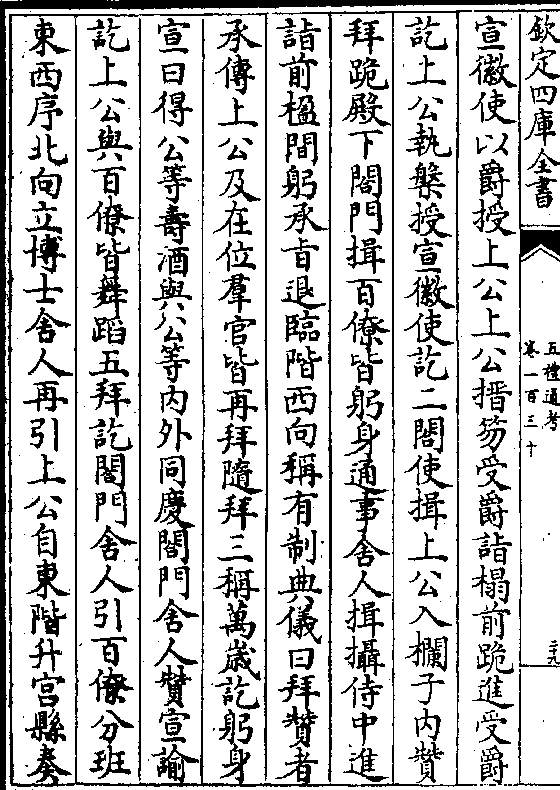 欽定四庫全書
五禮通考
卷一百三十
二十九
宣徽使以爵授上公上公搢笏受爵詣榻前跪進受爵
訖上公執槃授宣徽使訖二閤使揖上公入欄子内贊
拜跪殿下閤門揖百僚皆躬身通事舍人揖攝侍中進
詣前楹間躬承旨退臨階西向稱有制典儀曰拜贊者
承傳上公及在位羣官皆再拜隨拜三稱萬歲訖躬身
宣曰得公等壽酒與公等内外同慶閤門舍人贊宣諭
訖上公與百僚皆舞蹈五拜訖閤門舍人引百僚分班
東西序北向立博士舍人再引上公自東階升宫縣奏